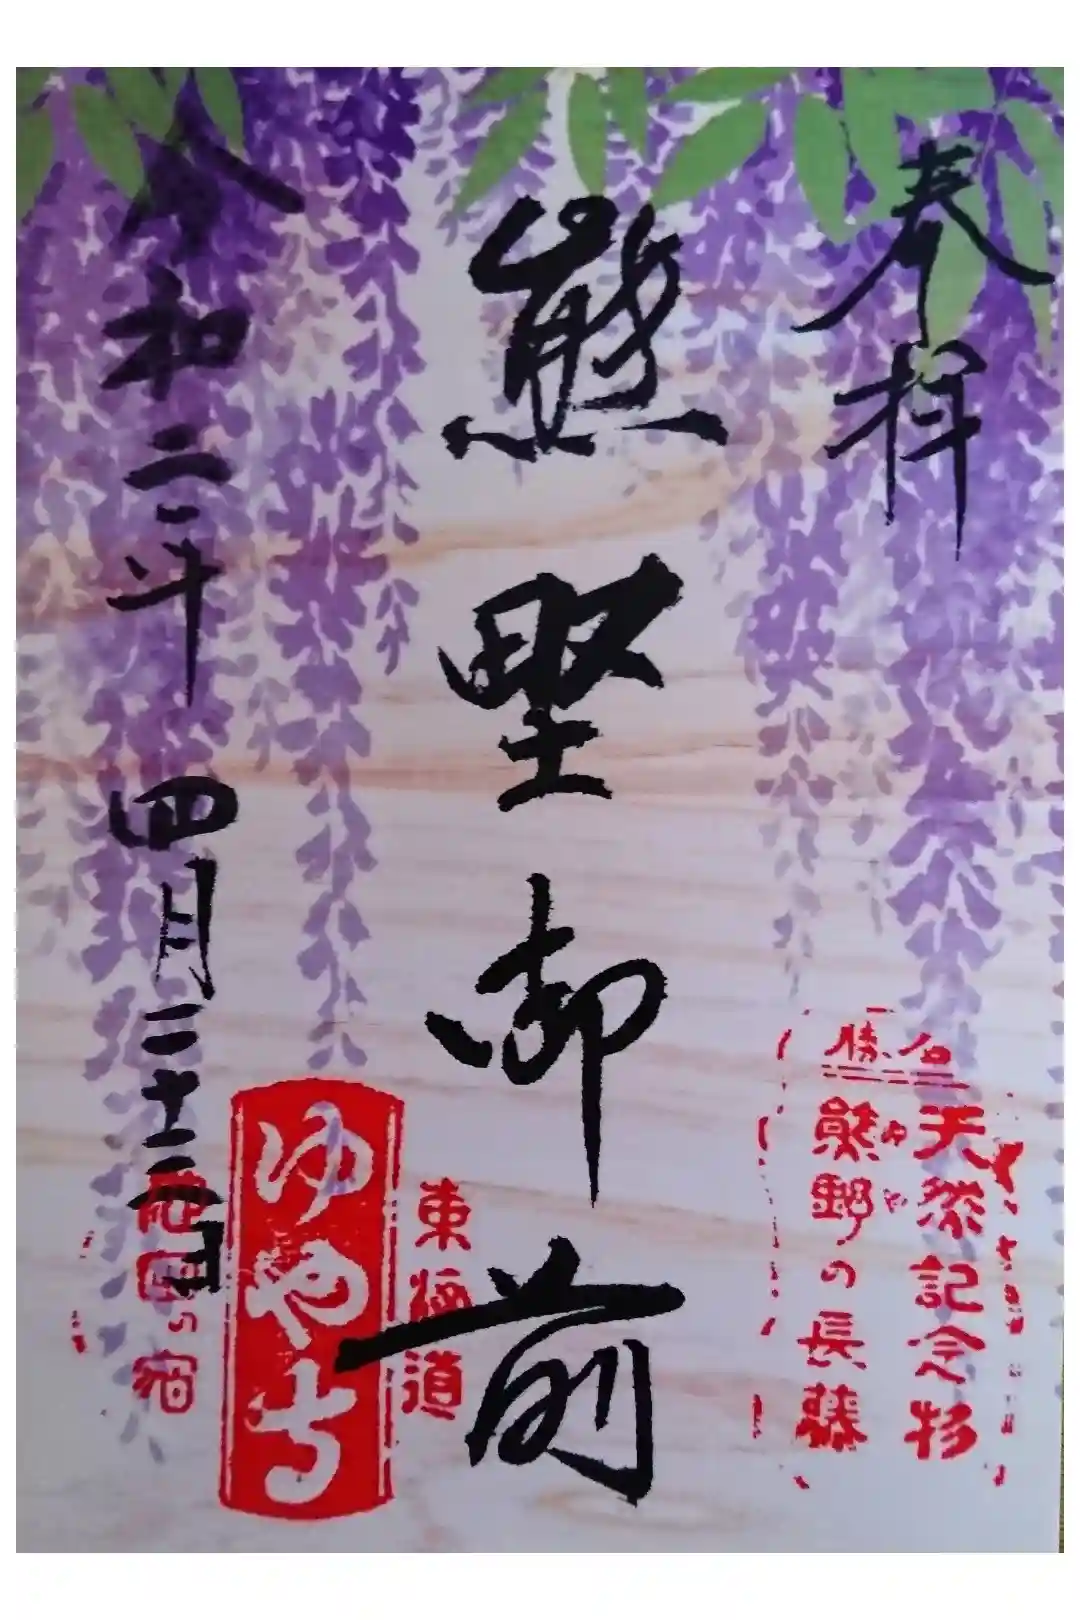 奉拝
名勝
天然記念物
熊野の長藤
熊野御前
東海道
ゆや
池田の宿
令和二年四月二十二日